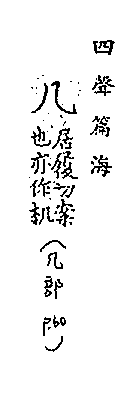 四聲篇海
几
居履切案
也亦作机
(几部 P60)